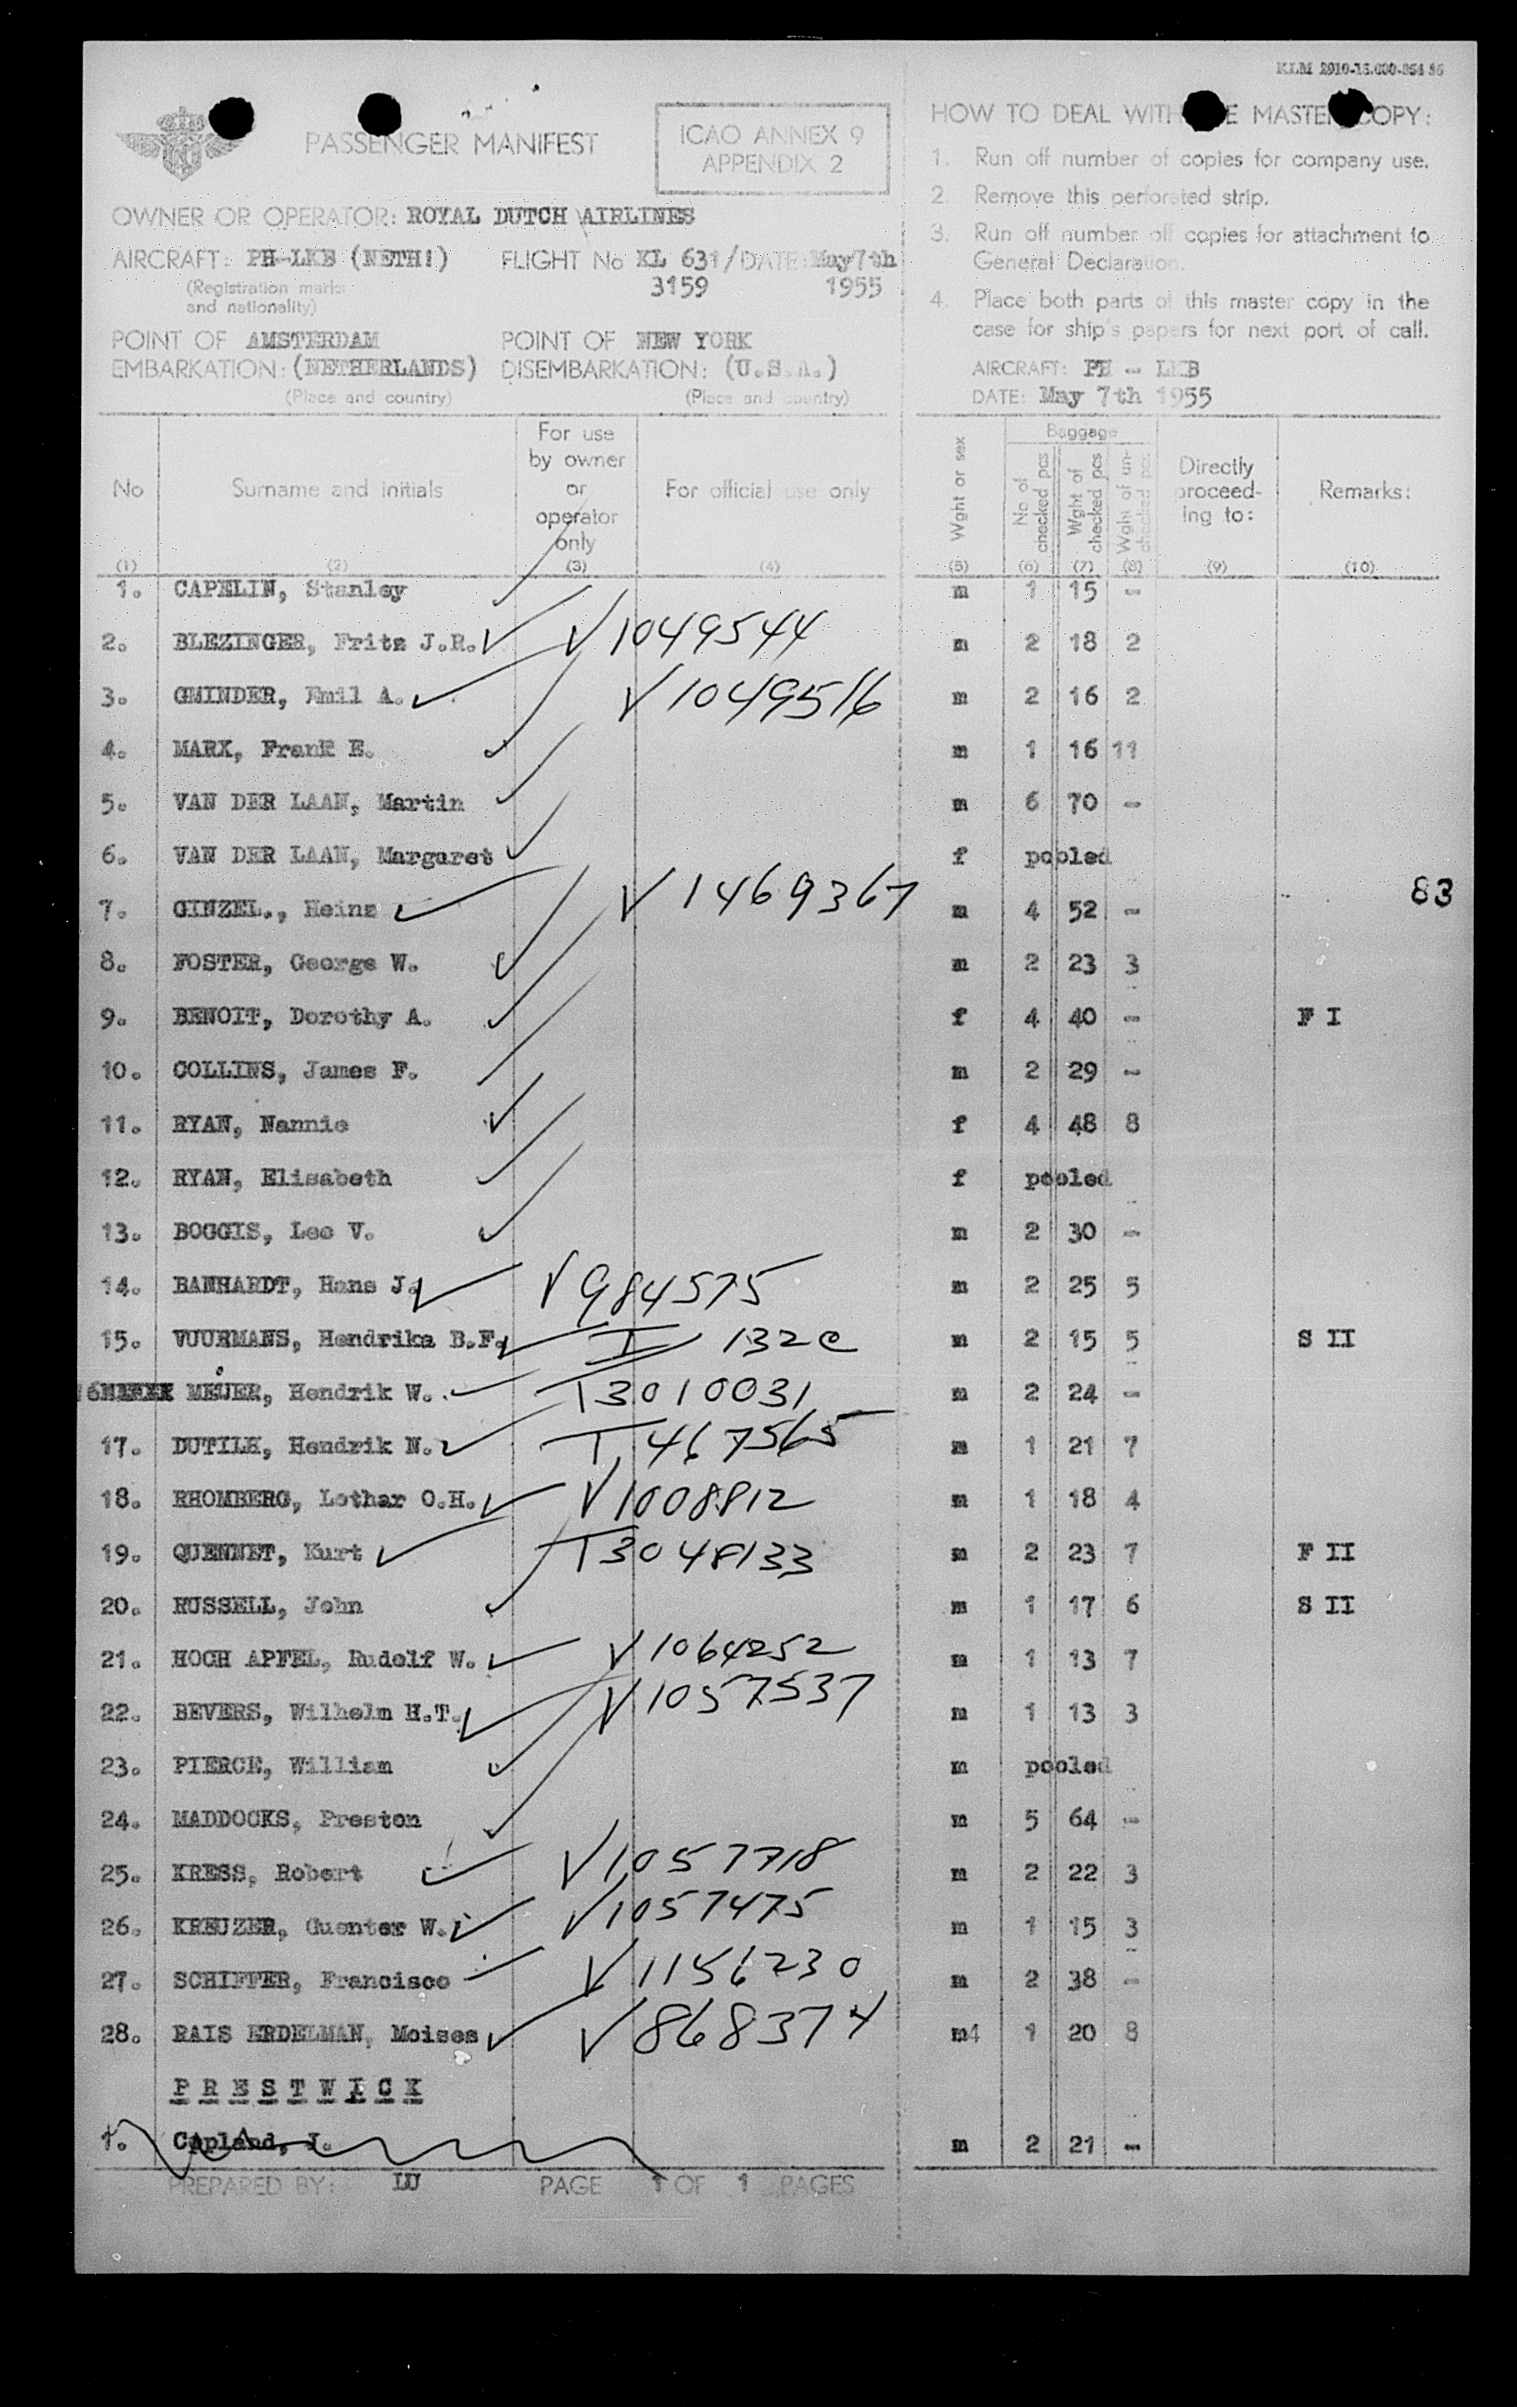 KLM 2910-15.000-854 56
PASSENGER MANIFEST
ICAO ANNEX 9
APPENDIX 2
OWNER OR OPERATOR: ROYAL DUTCH AIRLINES
AIRCRAFT: PH-LKB (NETH:) FLIGHT No KL 631/ DATE: May 7th
(Registration marks and nationality) 3159 1955
POINT OF EMBARKATION: AMSTERDAM (NETHERLANDS) POINT OF DISEMBARKATION: NEW YORK (U.S.A.)
(Place and country) (Place and country)
HOW TO DEAL WITH E MASTER COPY:
1. Run off number of copies for company use.
2. Remove this perforated strip.
3. Run off number off copies for attachment to
General Declaration.
4. Place both parts of this master copy in the
case for ship's papers for next port of call.
AIRCRAFT: PH - LKB
DATE: May 7th 1955
No Surname and initials For use by owner or operator only For official use only Wght or sex Baggage No of checked pcs Wght of checked pcs Wght of un-checked pcs Directly proceed-ing to: Remarks:
(1) (2) (3) (4) (5) (6) (7) (8) (9) (10)
1. CAPELIN, Stanley m 1 15 -
2. BLEZINGER, Fritz J.R. V 1049544 m 2 18 2
3. GMINDER, Emil A. V 1049516 m 2 16 2
4. MARX, Frank E. m 1 16 11
5. VAN DER LAAN, Martin m 6 70 -
6. VAN DER LAAN, Margaret f pooled
7. GINZEL., Heinz V 1469367 m 4 52 - 83
8. FOSTER, George W. m 2 23 3
9. BENOIT, Dorothy A. f 4 40 - F I
10. COLLINS, James F. m 2 29 -
11. RYAN, Nannie f 4 48 8
12. RYAN, Elisabeth f pooled
13. BOGGIS, Leo V. m 2 30 -
14. BANHARDT, Hans J. V 984575 m 2 25 5
15. VUURMANS, Hendrika B.F. I 132e m 2 15 5 S II
16 MEIJER, Hendrik W. T3010031 m 2 24 -
17. DUTILH, Hendrik N. T 467565 m 1 21 7
18. RHOMBERG, Lothar O.H. V1008812 m 1 18 4
19. QUENNET, Kurt T3048133 m 2 23 7 F II
20. RUSSELL, John m 1 17 6 S II
21. HOCH APFEL, Rudolf W. V1064252 m 1 13 7
22. BEVERS, Wilhelm H.T. V1057537 m 1 13 3
23. PIERCE, William m pooled
24. MADDOCKS, Preston m 5 64 -
25. KRESS, Robert V1057718 m 2 22 3
26. KREUZER, Guenter W. V1057475 m 1 15 3
27. SCHIFFER, Francisco V1156230 m 2 38 -
28. RAIS ERDELMAN, Moises V868374 m4 1 20 8
PRESTWICK
1. Copland, J. m 2 21 -
PREPARED BY: LU PAGE 1 OF 1 PAGES